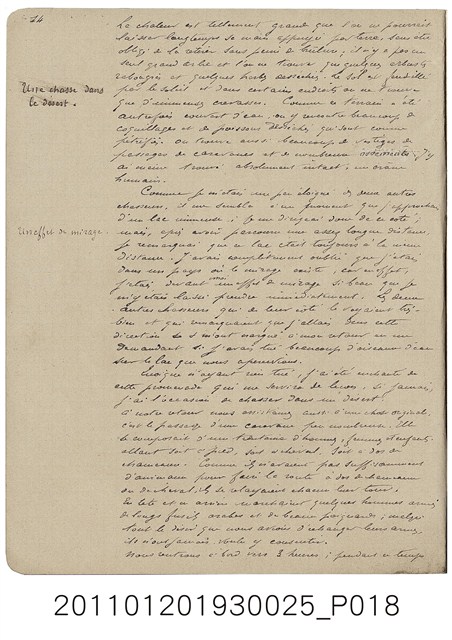 74
La chaleur est tellement grande que l'on ne pourrait
laisser longtemps sa main appuyée par terre, sans être
obligé de la retirer sans peine de brûlure; il n'y a pas un
seul grand arbre et l'on ne trouve que quelques arbustes
rabougris et quelques herbes desséchées. Le sol est fendillé
Une chasse dans
le désert.
par le soleil et dans certains endroits on ne trouve
que d'immenses crevasses. Comme ce terrain a été
autrefois couvert d'eau, on y rencontre beaucoup de
coquillages et de poissons desséchés qui sont comme
pétrifiés. On trouve aussi beaucoup de vestiges de
passages de caravanes et de nombreux J'y
ai même trouvé absolument intact, un crâne
humain.
Comme je m'étais un peu éloigné des deux autres
chasseurs, il me sembla à un moment que j'approchais
d'un lac immense; je me dirigeai donc de ce côté;
Un effet de mirage.
mais, après avoir parcouru une assez longue distance,
je remarquai que ce lac était toujours à la même
distance. J'avais complètement oublié que j'étais
dans un pays où le mirage existe, car en effet,
j'étais devant un effet de mirage si beau que je
m'y étais laissé prendre immédiatement. Les deux
autres chasseurs qui de leur côté le voyaient très
bien et qui remarquaient que j'allais dans cette
direction se sont moqués à mon retour en me
demandant si j'avais tué beaucoup d'oiseaux d'eau
sur le lac que nous apercevions.
Quoique n'ayant rien tué, j'ai été enchanté de
cette promenade qui me servira de leçon, si jamais,
j'ai l'occasion de chasser dans un désert.
A notre retour nous assistons aussi à une chose originale,
c'est le passage d'une caravane peu nombreuse. Elle
se composait d'une trentaine d'hommes, femmes et enfants,
allant soit à pied, soit à cheval, soit à dos de
chameaux. Comme ils n'avaient pas suffisamment
d'animaux pour faire la route à dos de chameau
ou de cheval, ils se relayaient chacun leur tour.
En tête et en arrière marchaient quelques hommes armés
de longs fusils, arabes et de beaux poignards; malgré
tout le désir que nous avions d'échanger leurs armes,
ils n'ont jamais voulu y consentir.
Nous rentrons à bord vers 3 heures; pendant ce temps
201101201930025_P018